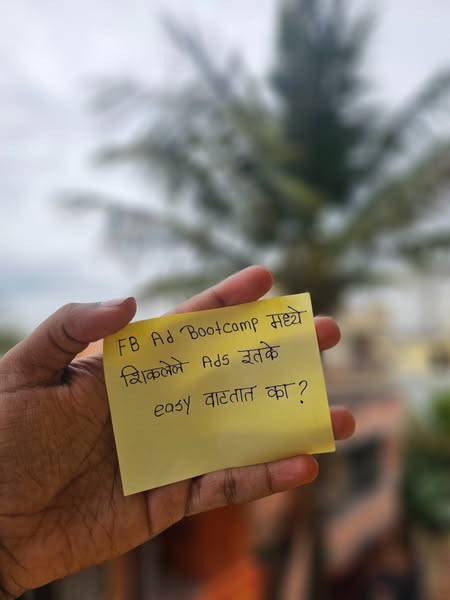 FB Ad Bootcamp मध्ये
शिकलेले Ads इतके
easy वाटतात का?